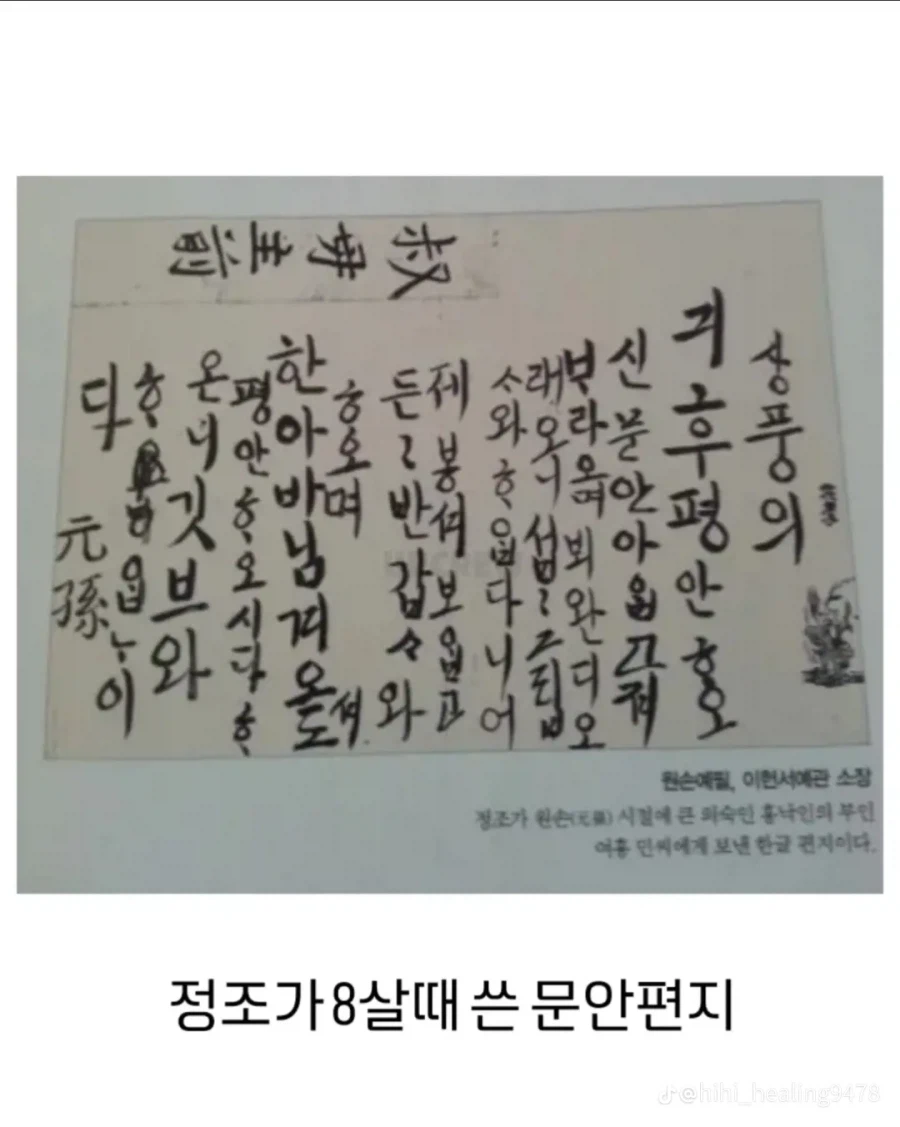 叔母主前
상풍의
긔후평안ᄒᆞ오
신문안아ᄋᆞᆸ고져
ᄇᆞ라오며뵈완디오
래오니섭〻그립
ᄉᆞ와ᄒᆞᄋᆞᆸ다니어
제봉셔보ᄋᆞᆸ고
든〻반갑ᄉᆞ와
ᄒᆞ오며
한아바님겨오셔도
평안ᄒᆞ오시다ᄒᆞ
온니깃브와
ᄒᆞᄋᆞᆸᄂᆞ이
다 元孫
원손예필, 이헌서예관 소장
정조가 원손(元孫) 시절에 큰 외숙인 홍낙인의 부인
여흥 민씨에게 보낸 한글 편지이다.
정조가 8살때 쓴 문안편지
@hihi_healing9478